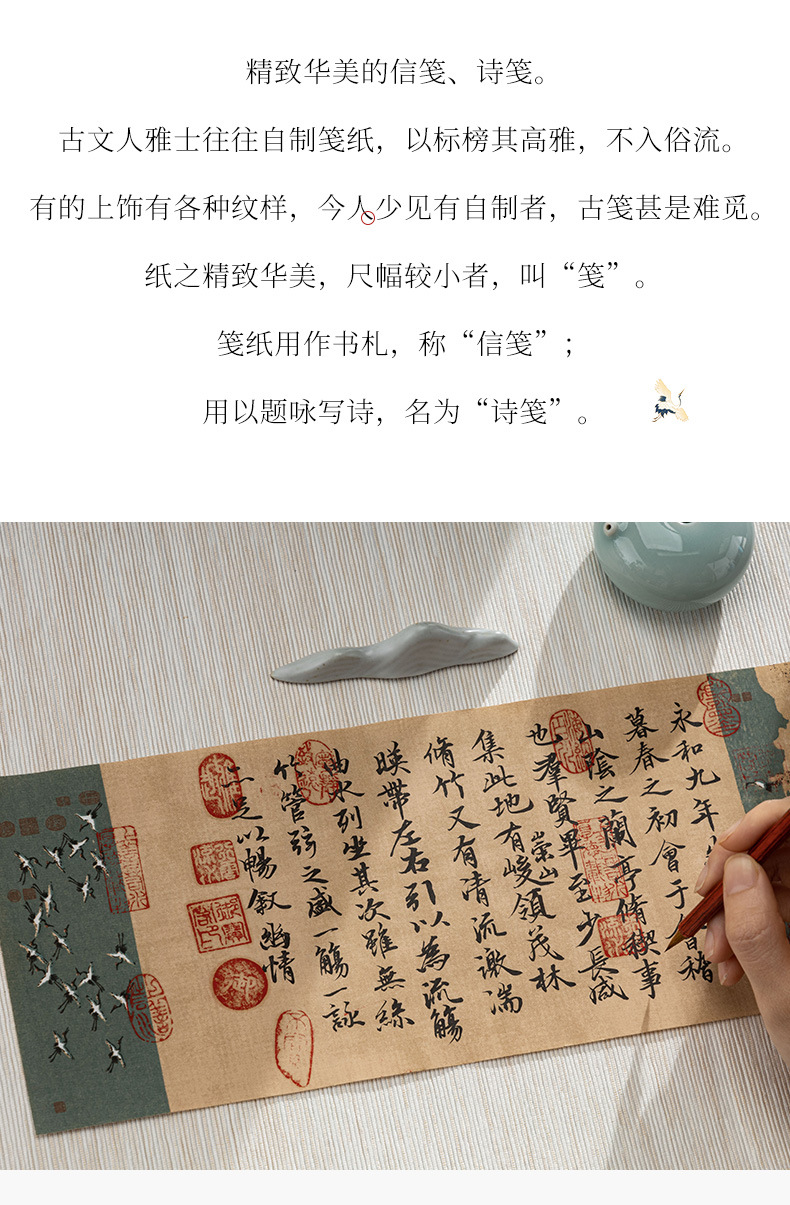 精致华美的信笺、诗笺。
古文人雅士往往自制笺纸，以标榜其高雅，不入俗流。
有的上饰有各种纹样，今人少见有自制者，古笺甚是难觅。
纸之精致华美，尺幅较小者，叫“笺”。
笺纸用作书札，称“信笺”；
用以题咏写诗，名为“诗笺”。
永和九年
暮春之初會于會稽
山陰之蘭亭脩稧事
也羣賢畢至少長咸
集此地有崇山峻領茂林
脩竹又有清流激湍
暎帶左右引以為流觴
曲水列坐其次雖無絲
竹管弦之盛一觴一詠
二足以暢敘幽情